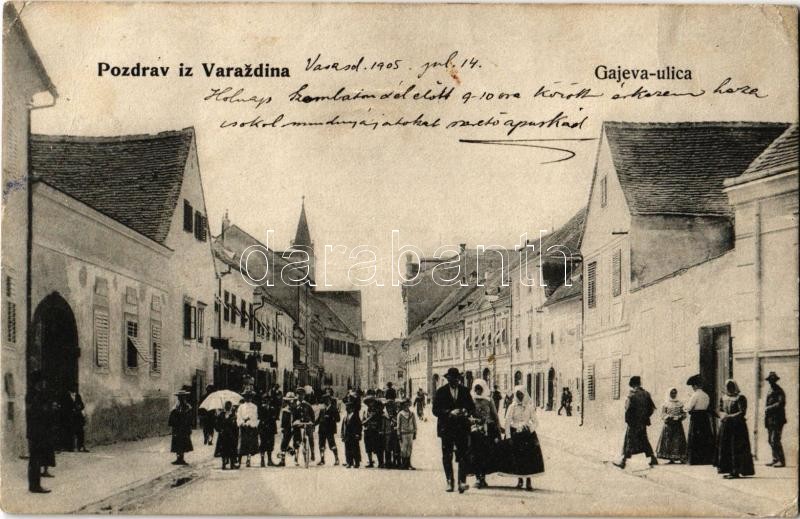 Pozdrav iz Varaždina
Varasd. 1905 jul. 14.
Gajeva-ulica
Holnap Szombaton délelőtt 9-10 óra között érkezem haza
csókol mindnyájatokat szerető apuskád
darabanth